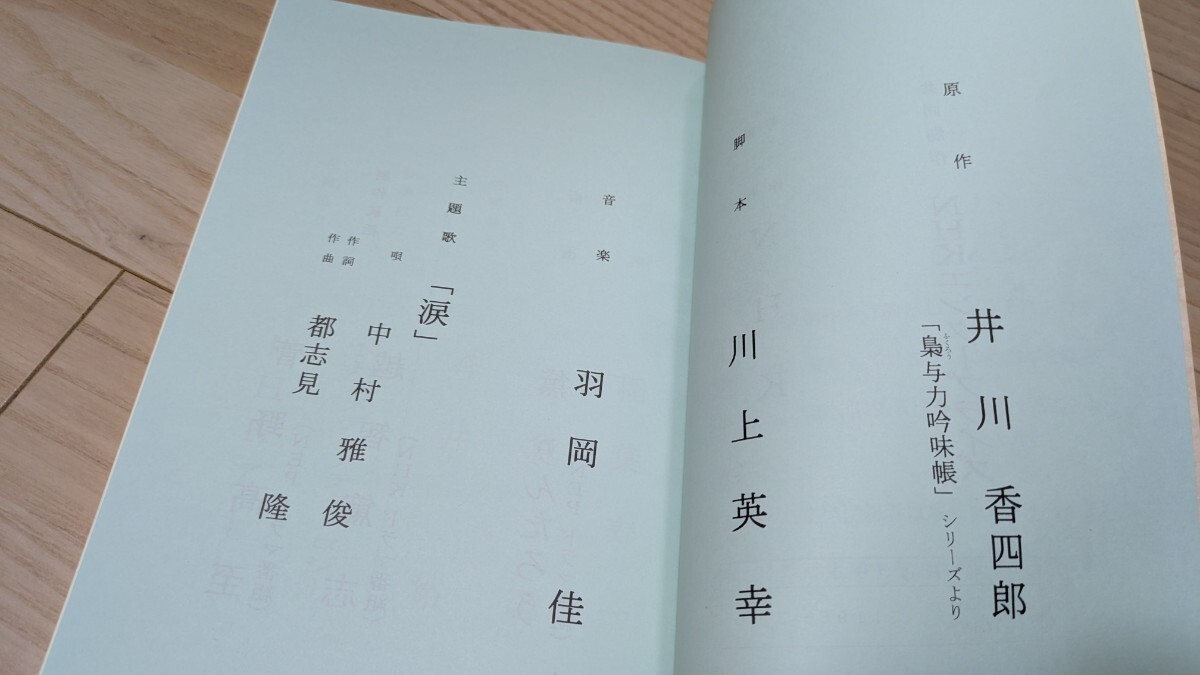 原作
井川香四郎
「梟与力吟味帳」シリーズより
ふくろう
脚本
川上英幸
音楽
羽岡佳
主題歌
「涙」
唄
中村雅俊
作詞
作曲
都志見隆